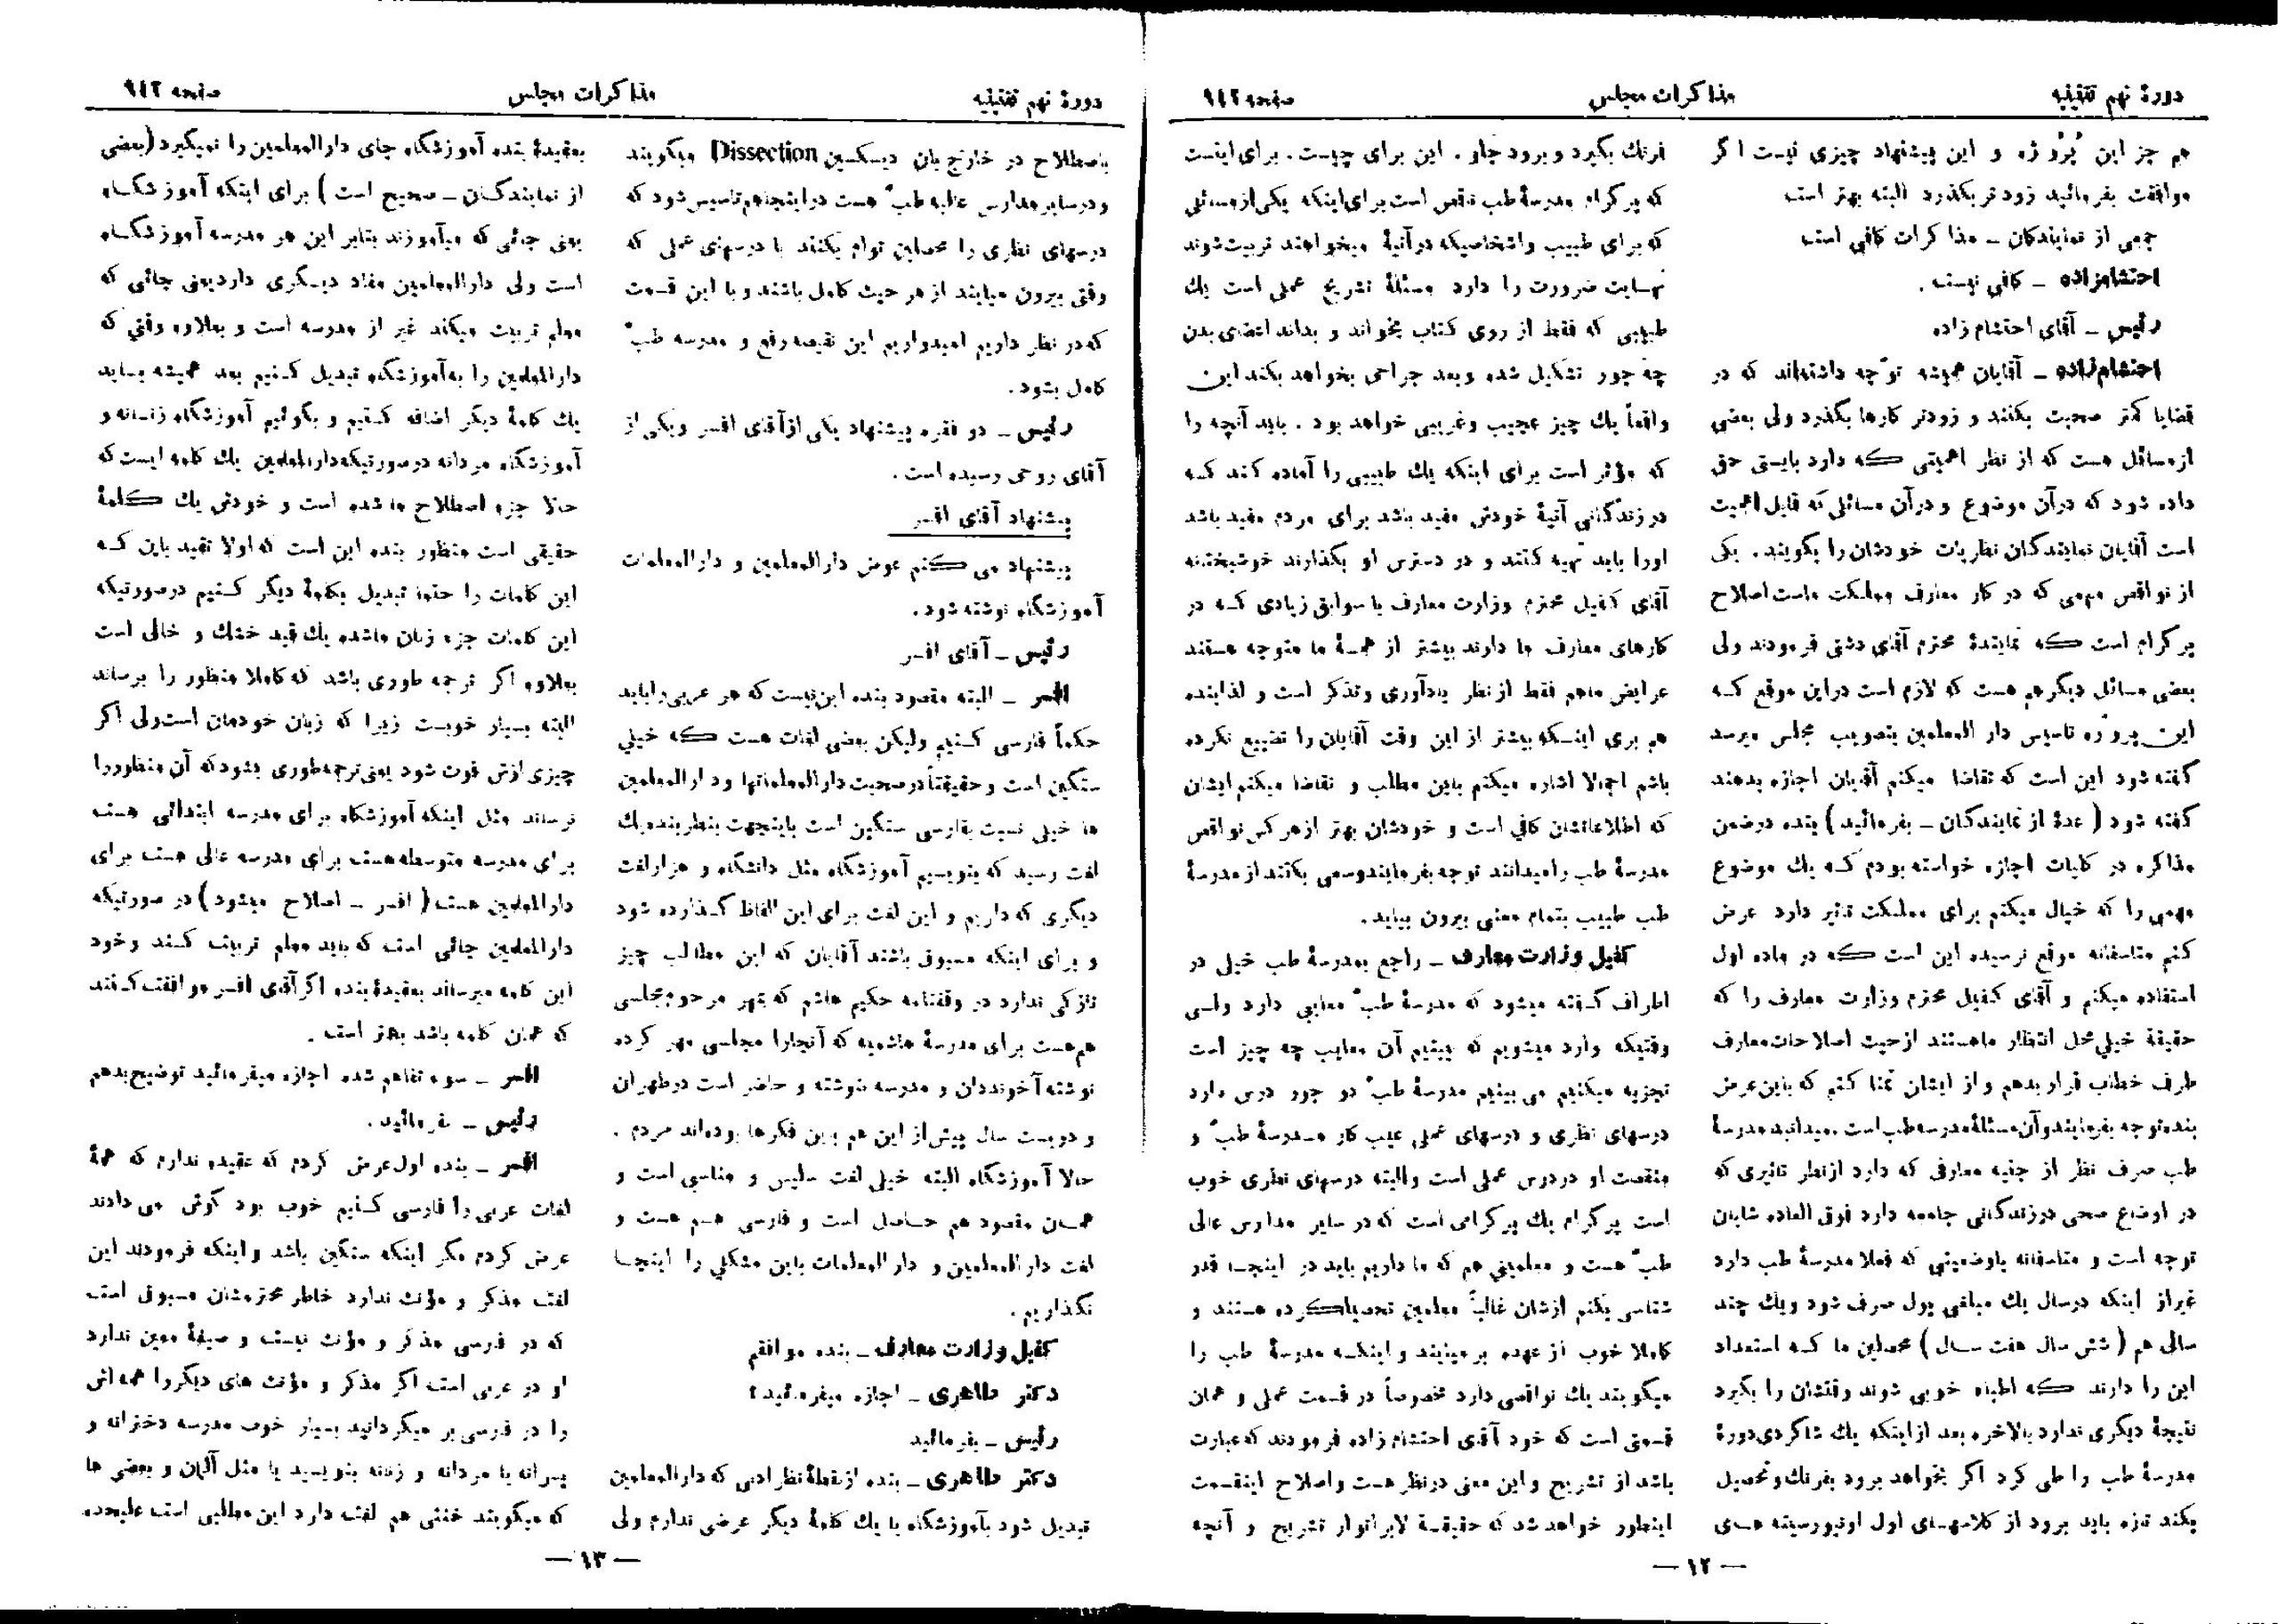 دورهٔ نهم تقنینیه
مذاکرات مجلس
صفحه ۹۴۲
هم جز این پُرُوژه و این پیشنهاد چیزی نیست اگر
موافقت بفرمائید زودتر بگذرد البته بهتر است
جمعی از نمایندگان ـ مذاکرات کافی است
احتشامزاده ـ کافی نیست .
رئیس ـ آقای احتشام زاده
احتشام‌زاده ـ آقایان همیشه توّجه داشته‌اند که در
قضایا کمتر صحبت بکنند و زودتر کارها بگذرد ولی بعضی
از مسائل هست که از نظر اهمیتی که دارد بایستی حق
داده شود که درآن موضوع و درآن مسائلی که قابل اهمیت
است آقایان نمایندگان نظریات خودشان را بگویند . یکی
از نواقص مهمی که در کار معارف مملکت ماست اصلاح
پرگرام است که نمایندهٔ محترم آقای دشتی فرمودند ولی
بعضی مسائل دیگر هم هست که لازم است دراین موقع که
این پروژه تاسیس دار المعلمین بتصویب مجلس میرسد
گفته شود این است که تقاضا میکنم آقایان اجازه بدهند
گفته شود ( عدهٔ از نمایندگان ـ بفرمائید ) بنده درضمن
مذاکره در کلیات اجازه خواسته بودم که یك موضوع
مهمی را که خیال میکنم برای مملکت تاثیر دارد عرض
کنم متاسفانه موقع نرسیده این است که در ماده اول
استفاده میکنم و آقای کفیل محترم وزارت معارف را که
حقیقة خیلی محل انتظار ما هستند ازحیث اصلاحات معارف
طرف خطاب قرار بدهم و از ایشان تمنا کنم که باین عرض
بنده توجه بفرمایند و آن مسئلهٔ مدرسه طب است . میدانید مدرسهٔ
طب صرف نظر از جنبه معارفی که دارد ازنظر تاثیری که
در اوضاع صحی درزندگانی جامعه دارد فوق العاده شایان
توجه است و متاسفانه باوضعیتی که فعلا مدرسهٔ طب دارد
غیراز اینکه درسال یك مبلغی پول صرف شود و یك چند
سالی هم ( شش سال هفت سال ) محصلین ما که استعداد
این را دارند که اطباء خوبی شوند وقتشان را بگیرد
نتیجهٔ دیگری ندارد بالاخره بعد ازاینکه یك شاگردی دورهٔ
مدرسهٔ طب را طی کرد اگر بخواهد برود بفرنك و تحصیل
بکند تازه باید برود از کلاسهای اول اونیورسیته های
فرنك بگیرد و برود جلو . این برای چیست . برای اینست
که پرگرام مدرسهٔ طب ناقص است برای اینکه یکی از مسائلی
که برای طبیب و اشخاصیکه درآتیهٔ میخواهند تربیت شوند
نهایت ضرورت را دارد مسئلهٔ تشریح عملی است یك
طبیبی که فقط از روی کتاب بخواند و بداند اعضای بدن
چه جور تشکیل شده و بعد جراحی بخواهد بکند این
واقعاً یك چیز عجیب وغریبی خواهد بود . باید آنچه را
که مؤثر است برای اینکه یك طبیبی را آماده کند که
درزندگانی آتیهٔ خودش مفید باشد برای مردم مفید باشد
اورا باید تهیه کنند و در دسترس او بگذارند خوشبختانه
آقای کفیل محترم وزارت معارف با سوابق زیادی که در
کارهای معارف ما دارند بیشتر از همهٔ ما متوجه هستند
عرایض ماهم فقط از نظر یادآوری وتذکر است و لذا بنده
هم برای اینکه بیشتر از این وقت آقایان را تضییع نکرده
باشم اجمالا اشاره میکنم باین مطلب و تقاضا میکنم ایشان
که اطلاعاتشان کافی است و خودشان بهتر ازهرکس نواقص
مدرسهٔ طب را میدانند توجه بفرمایند وسعی بکنند از مدرسهٔ
طب طبیب بتمام معنی بیرون بیاید .
کفیل وزارت معارف ـ راجع بمدرسهٔ طب خیلی در
اطراف گفته میشود که مدرسهٔ طبّ معایبی دارد ولی
وقتیکه وارد میشویم که ببینیم آن معایب چه چیز است
تجزیه میکنیم می بینیم مدرسهٔ طبّ دو جور درس دارد
درسهای نظری و درسهای عملی عیب کار مدرسهٔ طبّ و
منقصت او دردرس عملی است والبته درسهای نظری خوب
است پرگرام یك پرگرامی است که در سایر مدارس عالی
طبّ هست و معلمینی هم که ما داریم باید در اینجا قدر
شناسی بکنم ازشان غالباً معلمین تحصیلکرده هستند و
کاملا خوب از عهده بر میایند و اینکه مدرسهٔ طب را
میگویند یك نواقصی دارد مخصوصاً در قسمت عملی و همان
قسمتی است که خود آقای احتشام زاده فرمودند که عبارت
باشد از تشریح و این معنی درنظر هست واصلاح اینقسمت
اینطور خواهد شد که حقیقة لابراتوار تشریح و آنچه
ـ ۱۲ ـ
دورهٔ نهم تقنینیه
مذاکرات مجلس
صفحه ۹۴۳
باصطلاح در خارج بان دیسکسین Dissection میگویند
و درسایر مدارس عالیه طبّ هست دراینجاهم تاسیس شود که
درسهای نظری را محصلین توام بکنند با درسهای عملی که
وقتی بیرون میایند از هر حیث کامل باشند و با این قسمت
که در نظر داریم امیدواریم این نقیصه رفع و مدرسه طبّ
کامل بشود .
رئیس ـ دو فقره پیشنهاد یکی ازآقای افسر ویکی از
آقای روحی رسیده است .
پیشنهاد آقای افسر
پیشنهاد می کنم عوض دارالمعلمین و دارالمعلمات
آموزشگاه نوشته شود .
رئیس ـ آقای افسر
افسر ـ البته مقصود بنده این نیست که هر عربی را باید
حکماً فارسی کنیم ولیکن بعضی لغات هست که خیلی
سنگین است و حقیقتاً درصحبت دارالمعلماتها و دارالمعلمین
ها خیلی نسبت بفارسی سنگین است باینجهت بنظر بنده یك
لغت رسید که بنویسیم آموزشگاه مثل دانشگاه و هزارلغت
دیگری که داریم و این لغت برای این الفاظ گذارده شود
و برای اینکه مسبوق باشند آقایان که این مطالب چیز
تازگی ندارد در وقفنامه حکیم هاشم که بمهر مرحوم مجلسی
هم هست برای مدرسهٔ هاشمیه که آنجارا مجلسی مهر کرده
نوشته آخوندان و مدرسه نوشته و حاضر است درطهران
و دویست سال پیش از این هم باین فکرها بوده‌اند مردم .
حالا آموزشگاه البته خیلی لغت سلیس و مناسبی است و
همان مقصود هم حاصل است و فارسی هم هست و
لغت دارالمعلمین و دار المعلمات باین مشکلی را اینجا
نگذاریم .
کفیل وزارت معارف ـ بنده موافقم
دکتر طاهری ـ اجازه میفرمائید؟
رئیس ـ بفرمائید
دکتر طاهری ـ بنده ازنقطهٔ نظر ادبی که دارالمعلمین
تبدیل شود بآموزشگاه یا یك کلمهٔ دیگر عرضی ندارم ولی
بعقیدهٔ بنده آموزشگاه جای دارالمعلمین را نمیگیرد (بعضی
از نمایندگان ـ صحیح است ) برای اینکه آموزشگاه
یعنی جائی که میآموزند بنابر این هر مدرسه آموزشگاه
است ولی دارالمعلمین مفاد دیگری دارد یعنی جائی که
معلم تربیت میکند غیر از مدرسه است و بعلاوه وقتی که
دارالمعلمین را به‌آموزشگاه تبدیل کنیم بعد همیشه باید
یك کلمهٔ دیگر اضافه کنیم و بگوئیم آموزشگاه زنانه و
آموزشگاه مردانه درصورتیکه دارالمعلمین یك کلمه ایست که
حالا جزء اصطلاح ما شده است و خودش یك کلمهٔ
حقیقی است منظور بنده این است که اولا تقید باین که
این کلمات را حتما تبدیل بکلمهٔ دیگر کنیم درصورتیکه
این کلمات جزء زبان ما شده یك قید خشك و خالی است
بعلاوه اگر ترجمه طوری باشد که کاملا منظور را برساند
البته بسیار خوبست زیرا که زبان خودمان است ولی اگر
چیزی ازش فوت شود یعنی ترجمه طوری بشود که آن منظور را
نرساند مثل اینکه آموزشگاه برای مدرسه ابتدائی هست
برای مدرسه متوسطه هست برای مدرسه عالی هست برای
دارالمعلمین هست ( افسر ـ اصلاح میشود ) در صورتیکه
دارالمعلمین جائی است که باید معلم تربیت کند وخود
این کلمه میرساند بعقیدهٔ بنده اگر آقای افسر موافقت کنند
که همان کلمه باشد بهتر است .
افسر ـ سوء تفاهم شده اجازه میفرمائید توضیح بدهم
رئیس ـ بفرمائید .
افسر ـ بنده اول عرض کردم که عقیده ندارم که همهٔ
لغات عربی را فارسی کنیم خوب بود گوش می دادند
عرض کردم مگر اینکه سنگین باشد و اینکه فرمودند این
لغت مذکر و مؤنث ندارد خاطر محترمشان مسبوق است
که در فارسی مذکر و مؤنث نیست و صیغهٔ معین ندارد
او در عربی است اگر مذکر و مؤنث های دیگر را همه اش
را در فارسی بر میگردانید بسیار خوب مدرسه دخترانه و
پسرانه یا مردانه و زنانه بنویسید یا مثل آلمان و بعضی ها
که میگویند خنثی هم لغت دارد این مطلبی است علیحده
ـ ۱۳ ـ